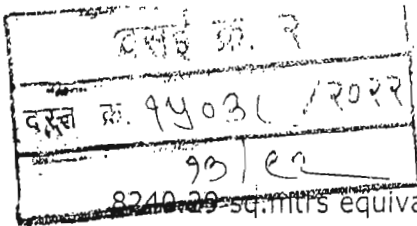 वसई क्र. २
दस्त क्र. १५०३८ /२०२२
१३/८२
8240.29 sq.mtrs equiva